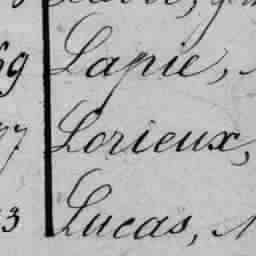 69 Lapie,
7 Lorieux,
3 Lucas,